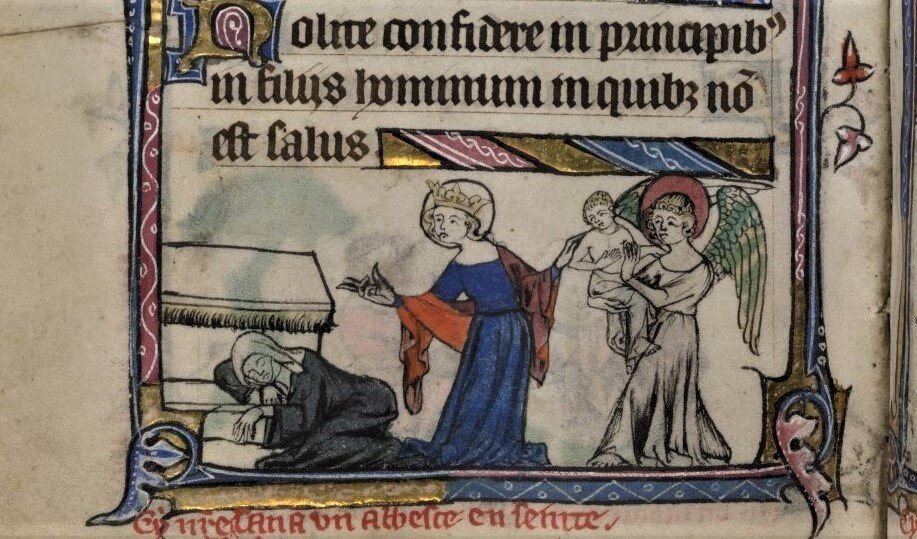 Nolite confidere in principibꝰ
in filijs hominum in quibꝫ nō
est salus
Cy nre un abbesce en seinte